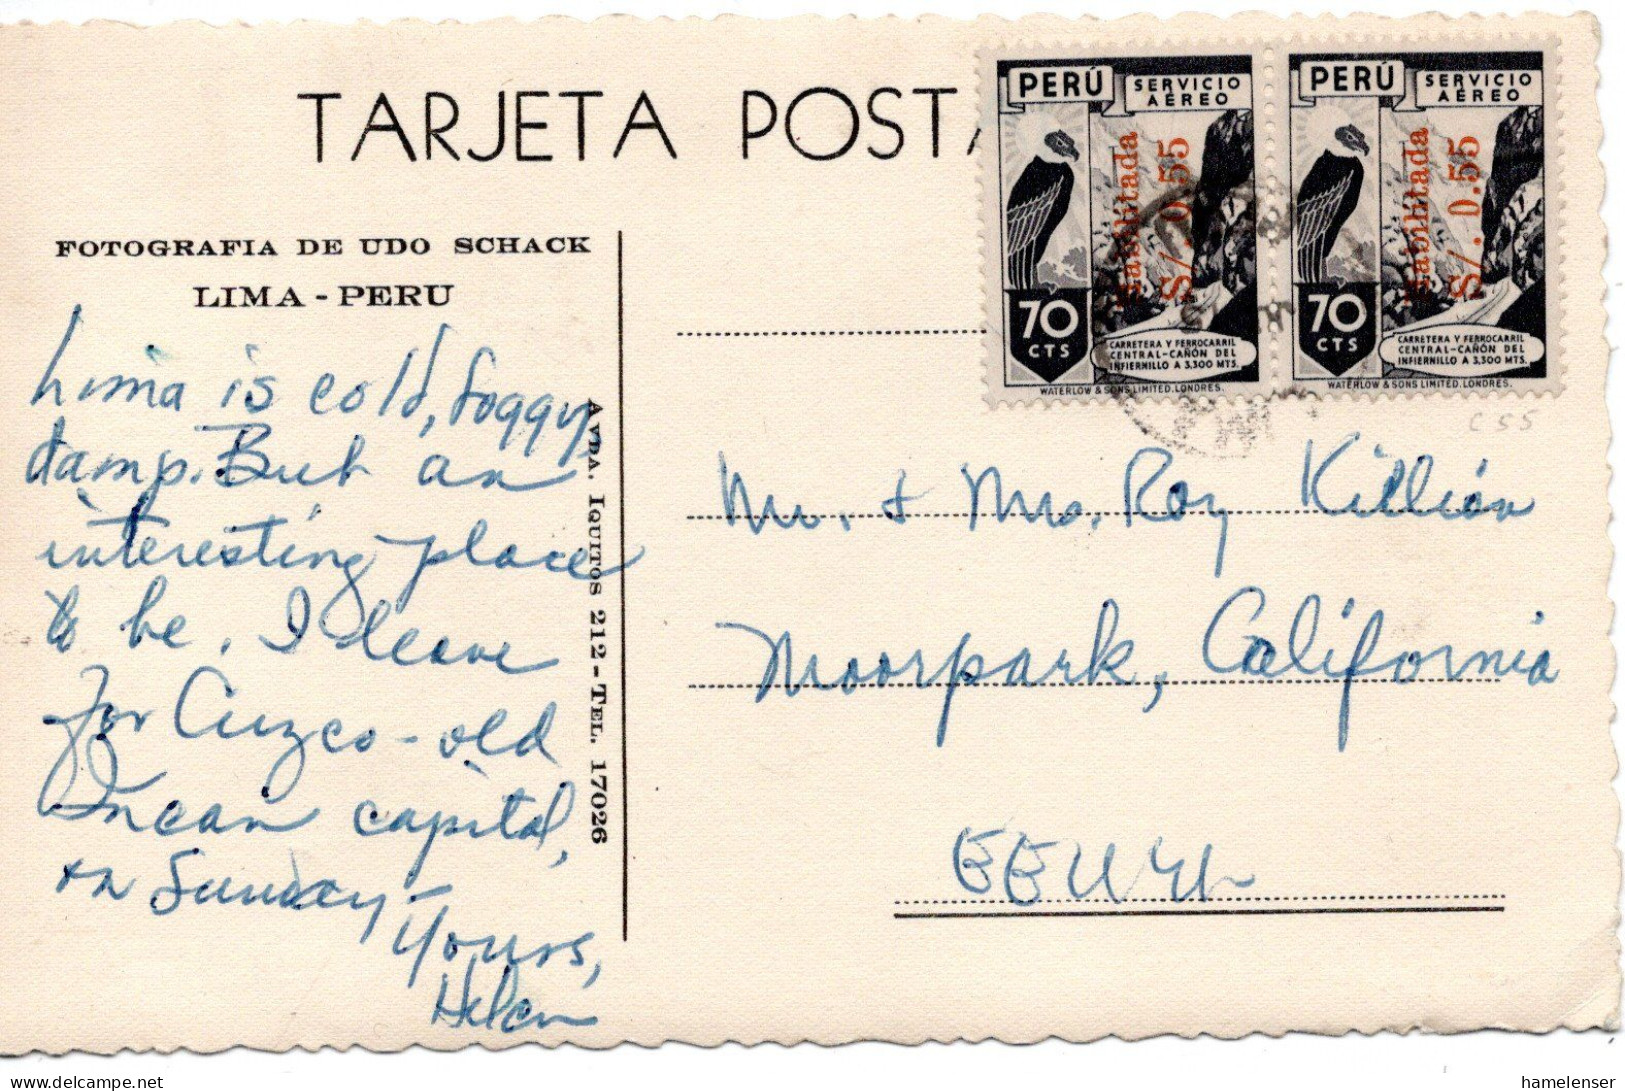 TARJETA POSTA
FOTOGRAFIA DE UDO SCHACK
LIMA - PERU
Lima is cold, foggy,
damp. But an
interesting place
to be. I leave
for Cuzco - old
Incan capital,
on Sunday -
Yours,
Helen
AVDA. IQUITOS 212 - TEL. 17026
PERÚ
SERVICIO
AÉREO
Habilitada
S/. 0.55
70
CTS
CARRETERA Y FERROCARRIL
CENTRAL-CAÑÓN DEL
INFIERNILLO A 3,300 MTS.
WATERLOW & SONS LIMITED. LONDRES.
PERÚ
SERVICIO
AÉREO
Habilitada
S/. 0.55
70
CTS
CARRETERA Y FERROCARRIL
CENTRAL-CAÑÓN DEL
INFIERNILLO A 3,300 MTS.
WATERLOW & SONS LIMITED. LONDRES.
C 55
Mr. + Mrs. Roy Killian
Moorpark, California
hamelenser